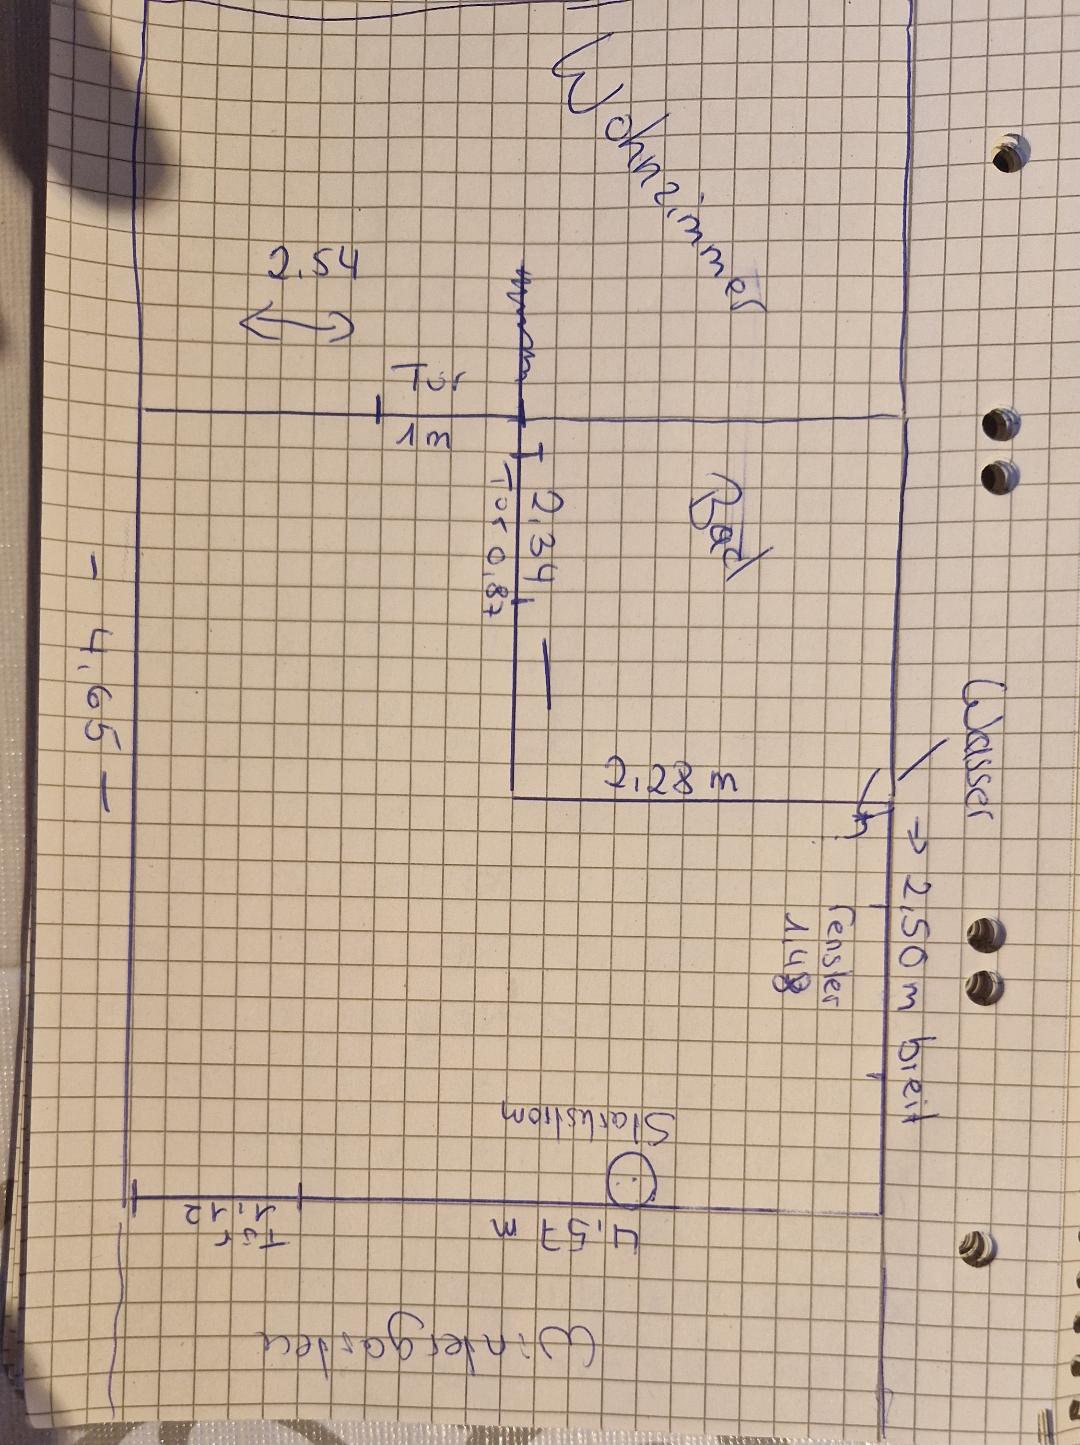 Wohnzimmer
2.54
Tür
1 m
Tür 0,87
2,34
Bad
Wasser
2,28 m
→ 2,50 m breit
Fenster
1,48
- 4,65 -
Starkstrom
4,57 m
Tür
1,12
Wintergarten